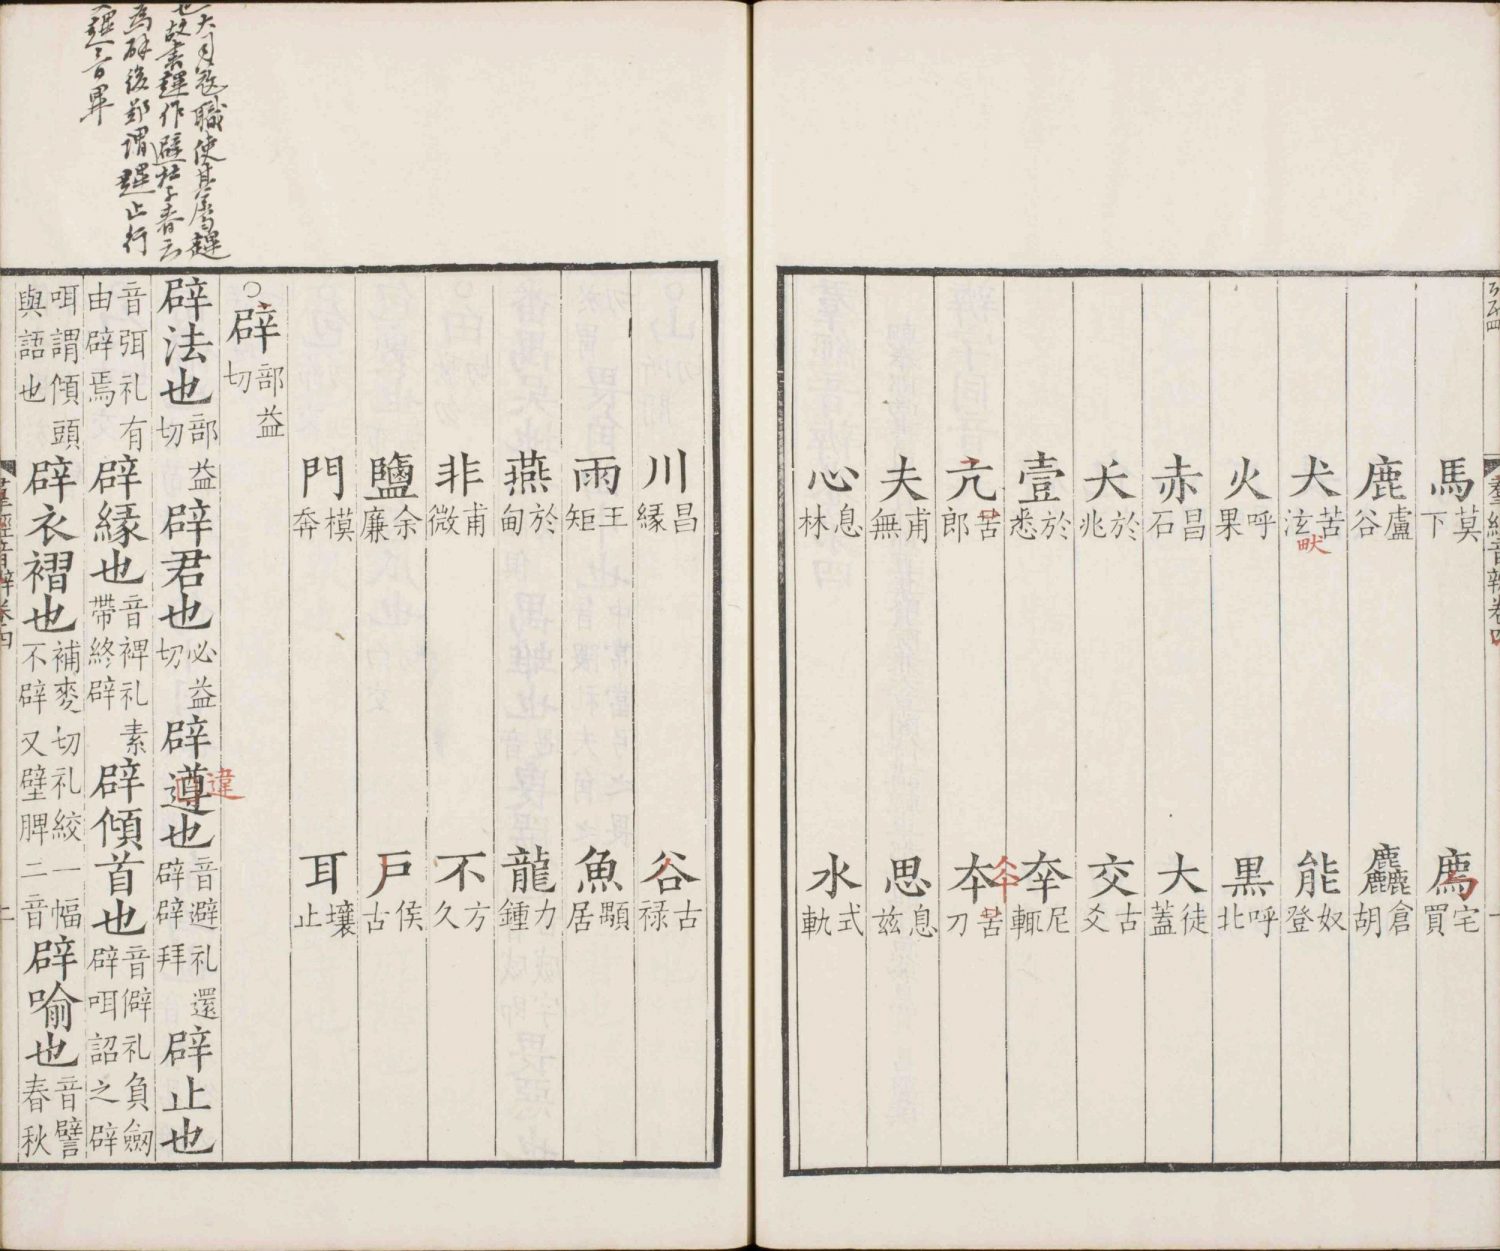 馬莫下 廌宅買
鹿盧谷 麤倉胡
犬苦泫 能奴登
畎
火呼果 黑呼北
赤昌石 大徒蓋
夭於兆 交古爻
壹於悉 㚔尼輒
亢苦郎 夲苦刀
夫甫無 思息茲
心息林 水式軌
羣經音辨卷四
川昌緣 谷古祿
雨王矩 魚顒居
燕於甸 龍力鍾
非甫微 不方久
鹽余廉 戶侯古
門模奔 耳壤止
○辟部益切
辟法也部益切辟君也必益切辟遵也音避礼還辟辟拜辟止也
違
音弭礼有由辟焉辟緣也音裨礼素帶終辟辟傾首也音僻礼負劒辟咡詔之辟
咡謂傾頭與語也辟衣褶也補麥切礼絞一幅不辟又壁脾二音辟喻也音譬春秋
羣經音辨卷四
也大司寇職使其屬趩
也故書趩作避杜子春云
為辟後鄭謂趩止行